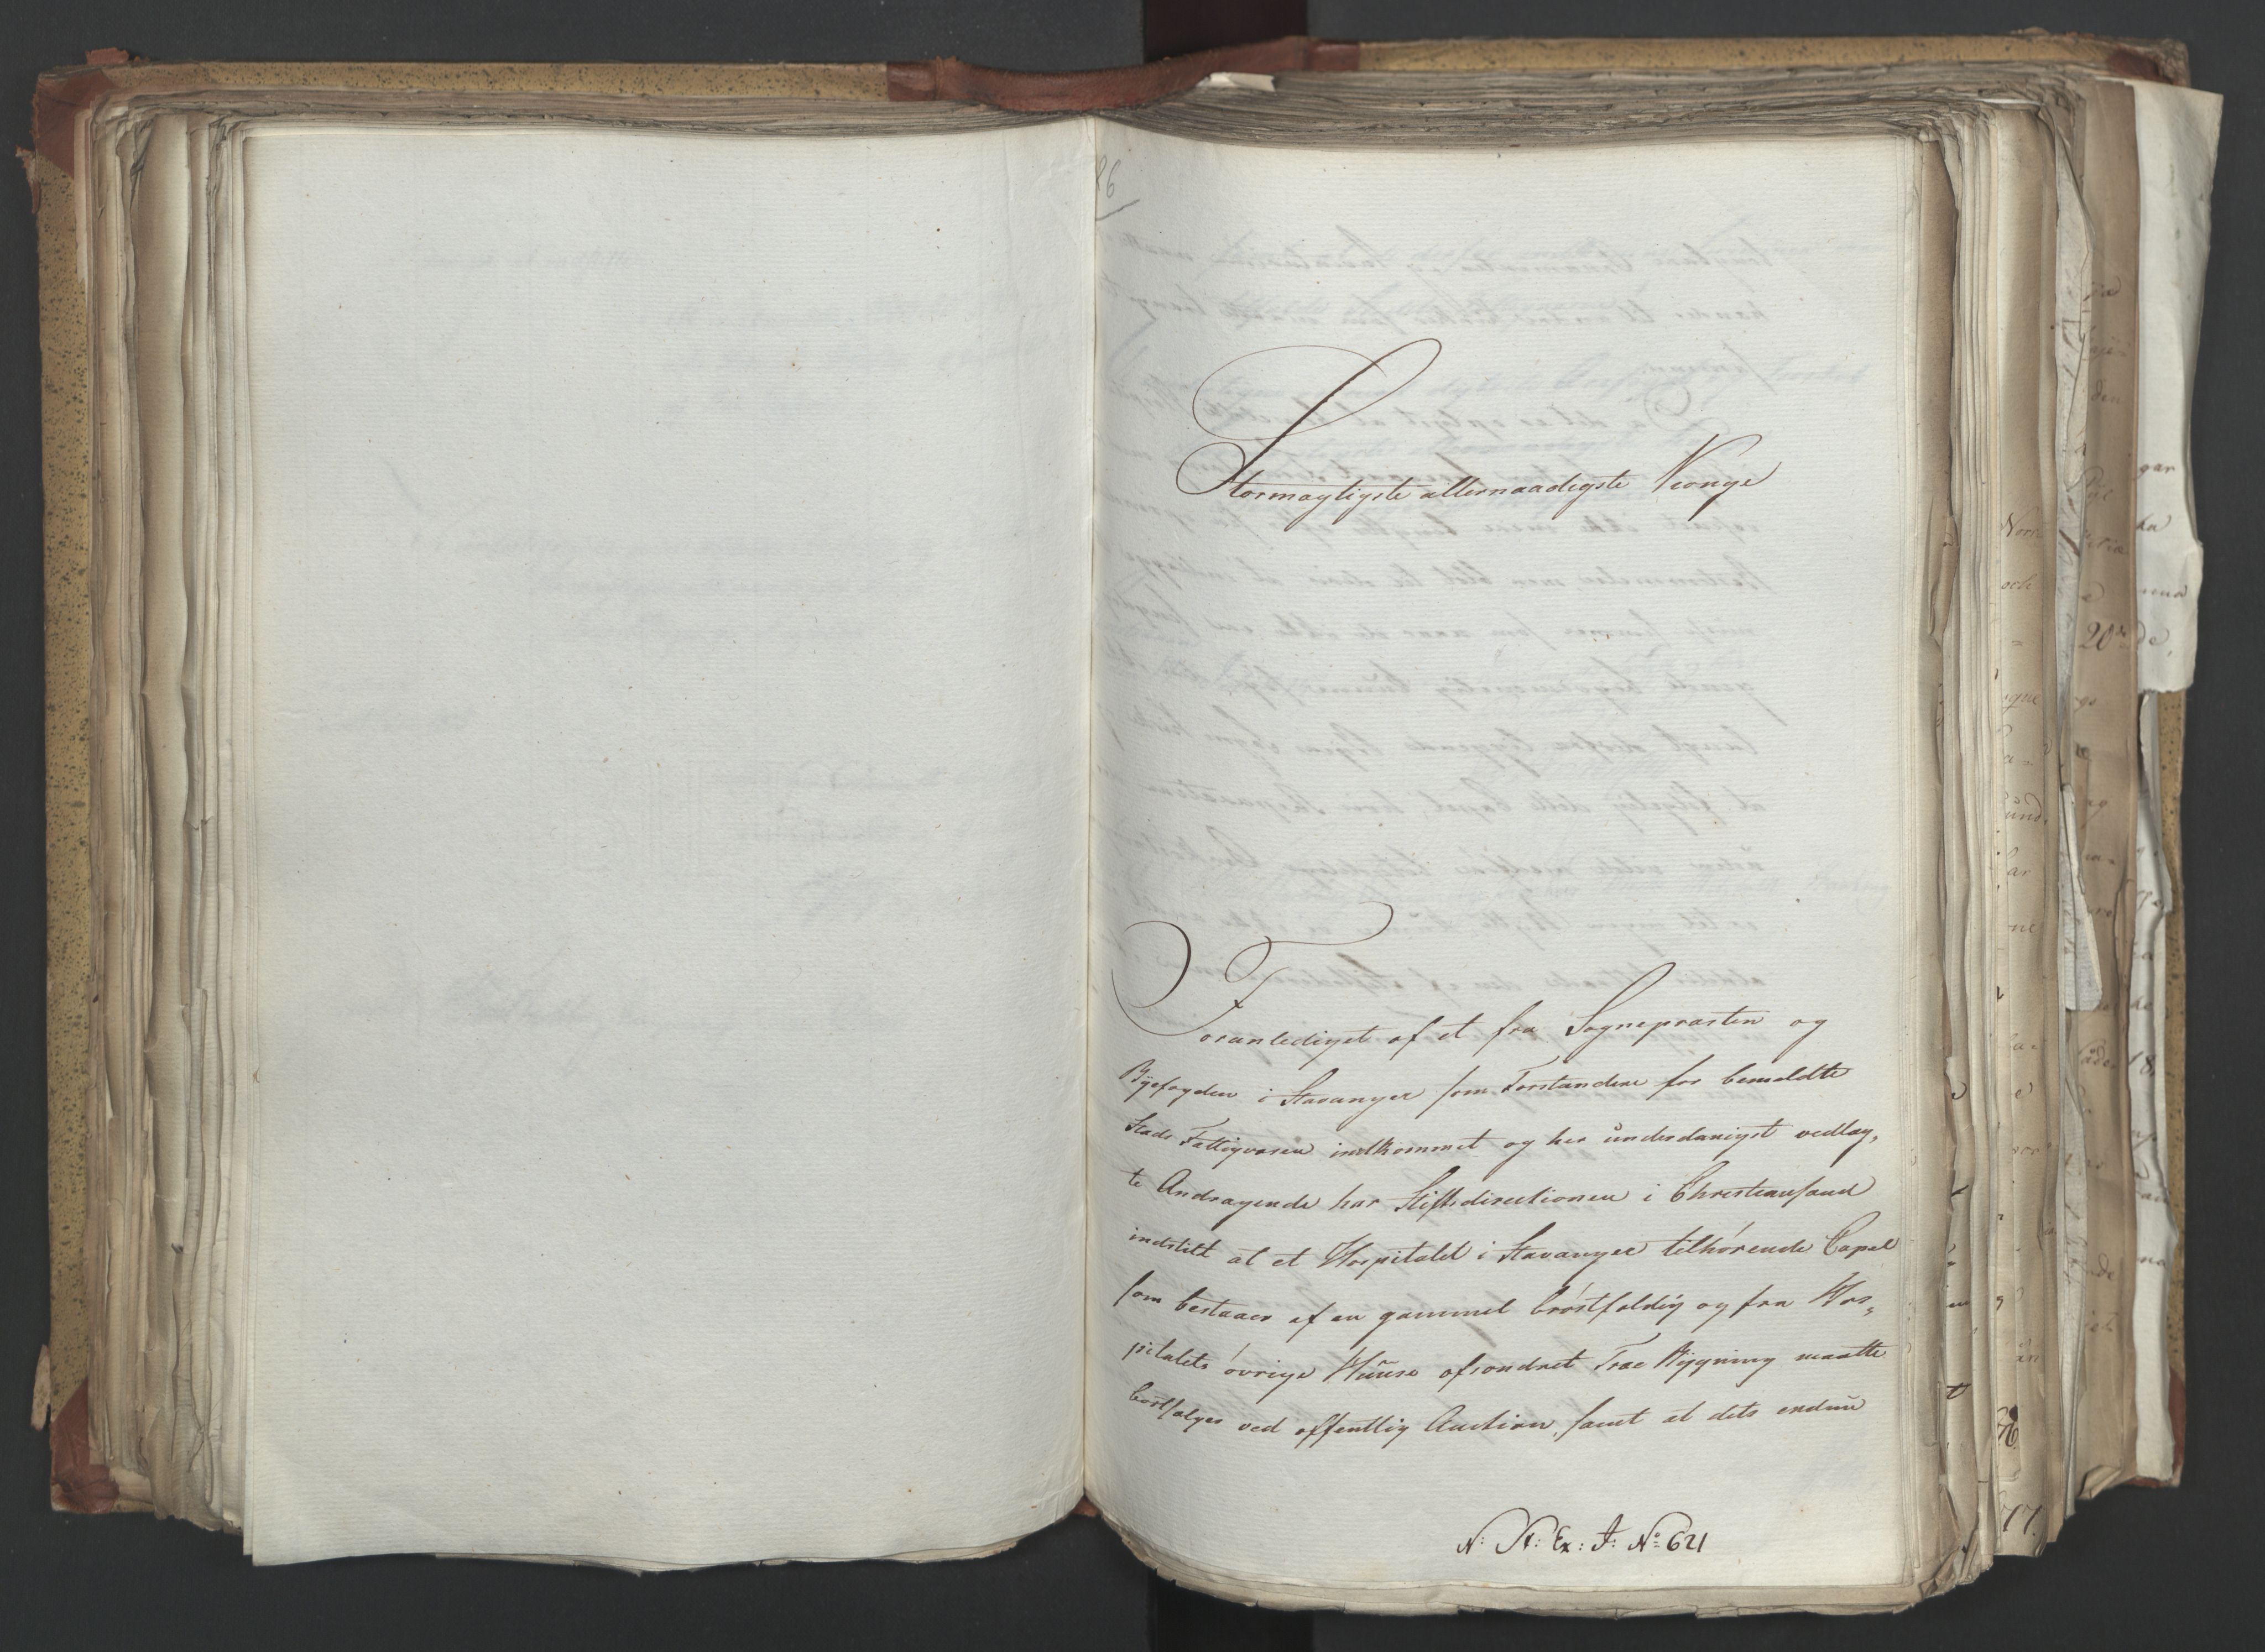 86
Stormægtigste allernaadigste Konge
Foranlediget af et fra Sognepræsten og
Byefogden i Stavanger som Forstandere for bemeldte
Stads Fattigvæsen indkommet og her underdanigst vedlag,
te Andragende har Stiftsdirectionen i Christiansand
indstilt at et Hospitalet i Stavanger tilhørende Capel
som bestaaer af en gammel brøstfældig og fra Hos,
pitalets øvrige Huuse afsondret Træe Bygning maatte
bortsælges ved offentlig Auction, samt at dets endnu
N: N: Ex: J: No 621